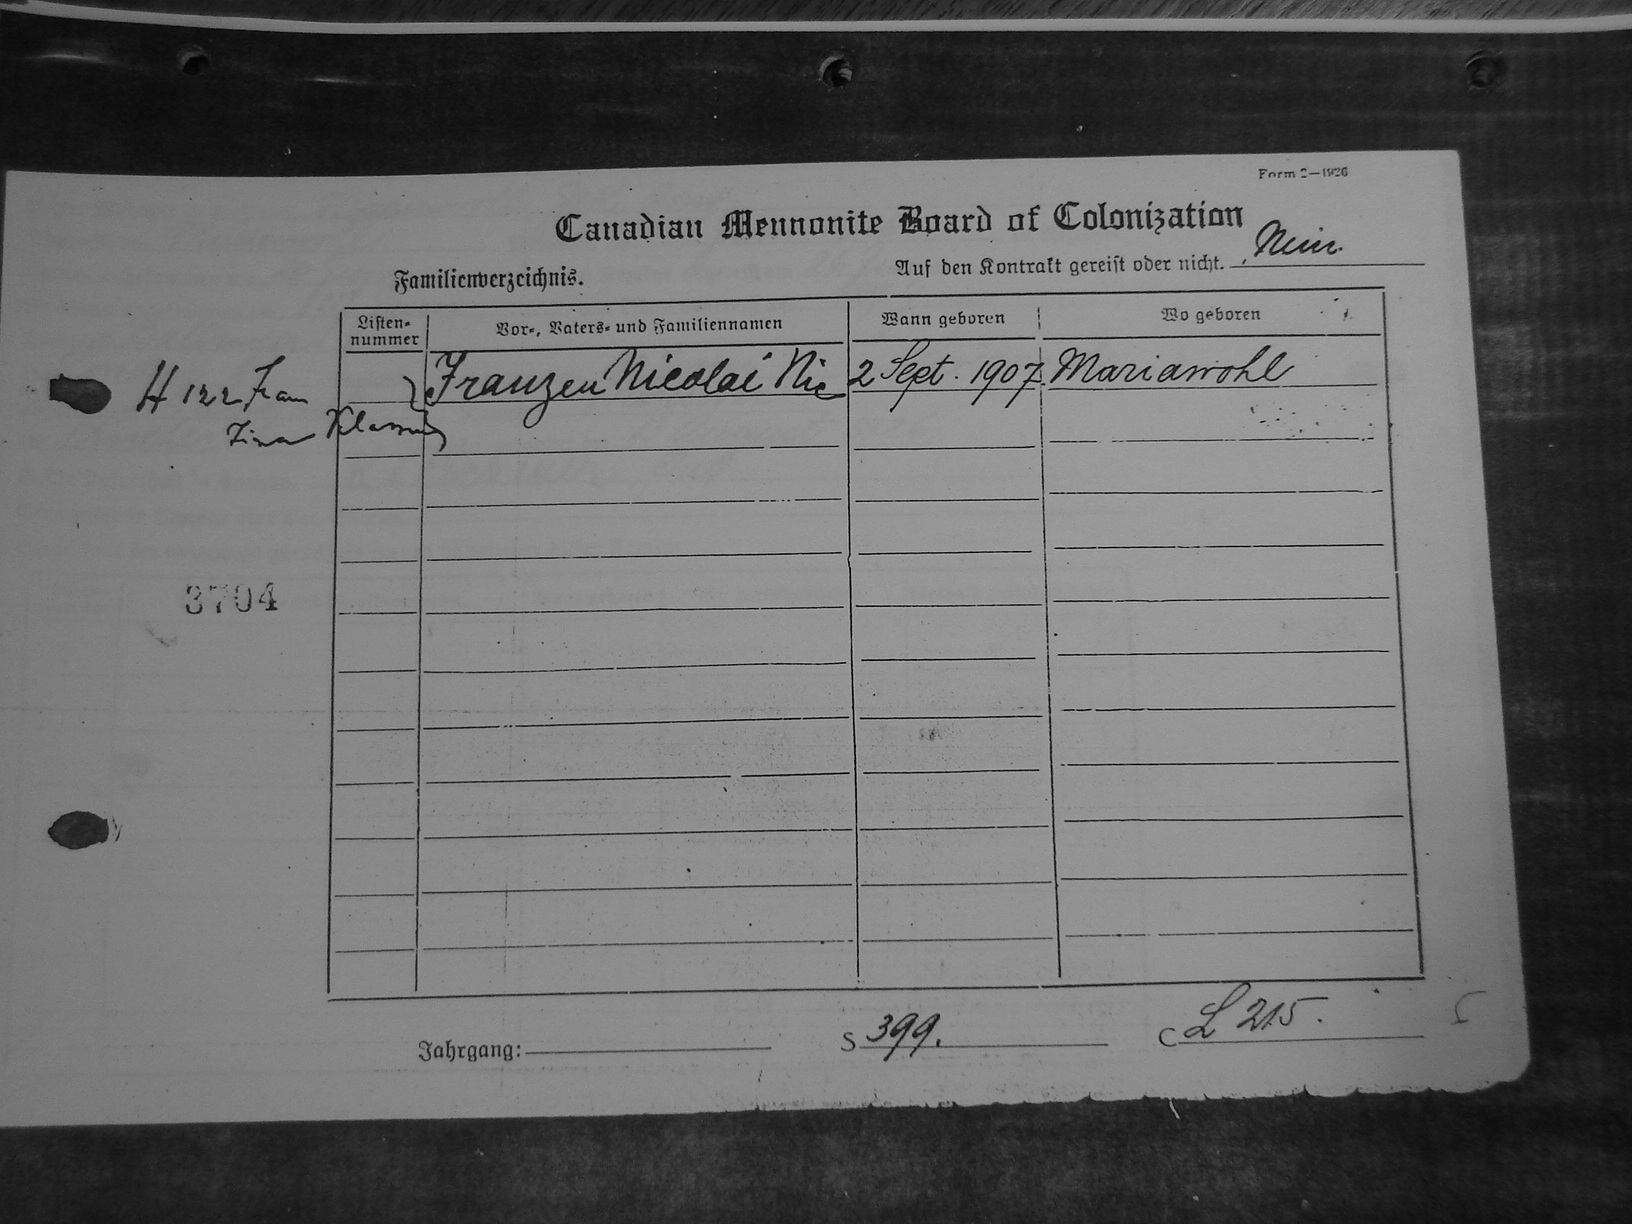 Form 2—1926
Canadian Mennonite Board of Colonization
Familienverzeichnis.
Auf den Kontrakt gereist oder nicht. Nein.
Listen-
nummer
Vor-, Vaters- und Familiennamen
Wann geboren
Wo geboren
H 122 Frau
Franzen Nicolai Nic
2 Sept. 1907.
Mariawohl
3704
Jahrgang:
S 399.
C L 215.